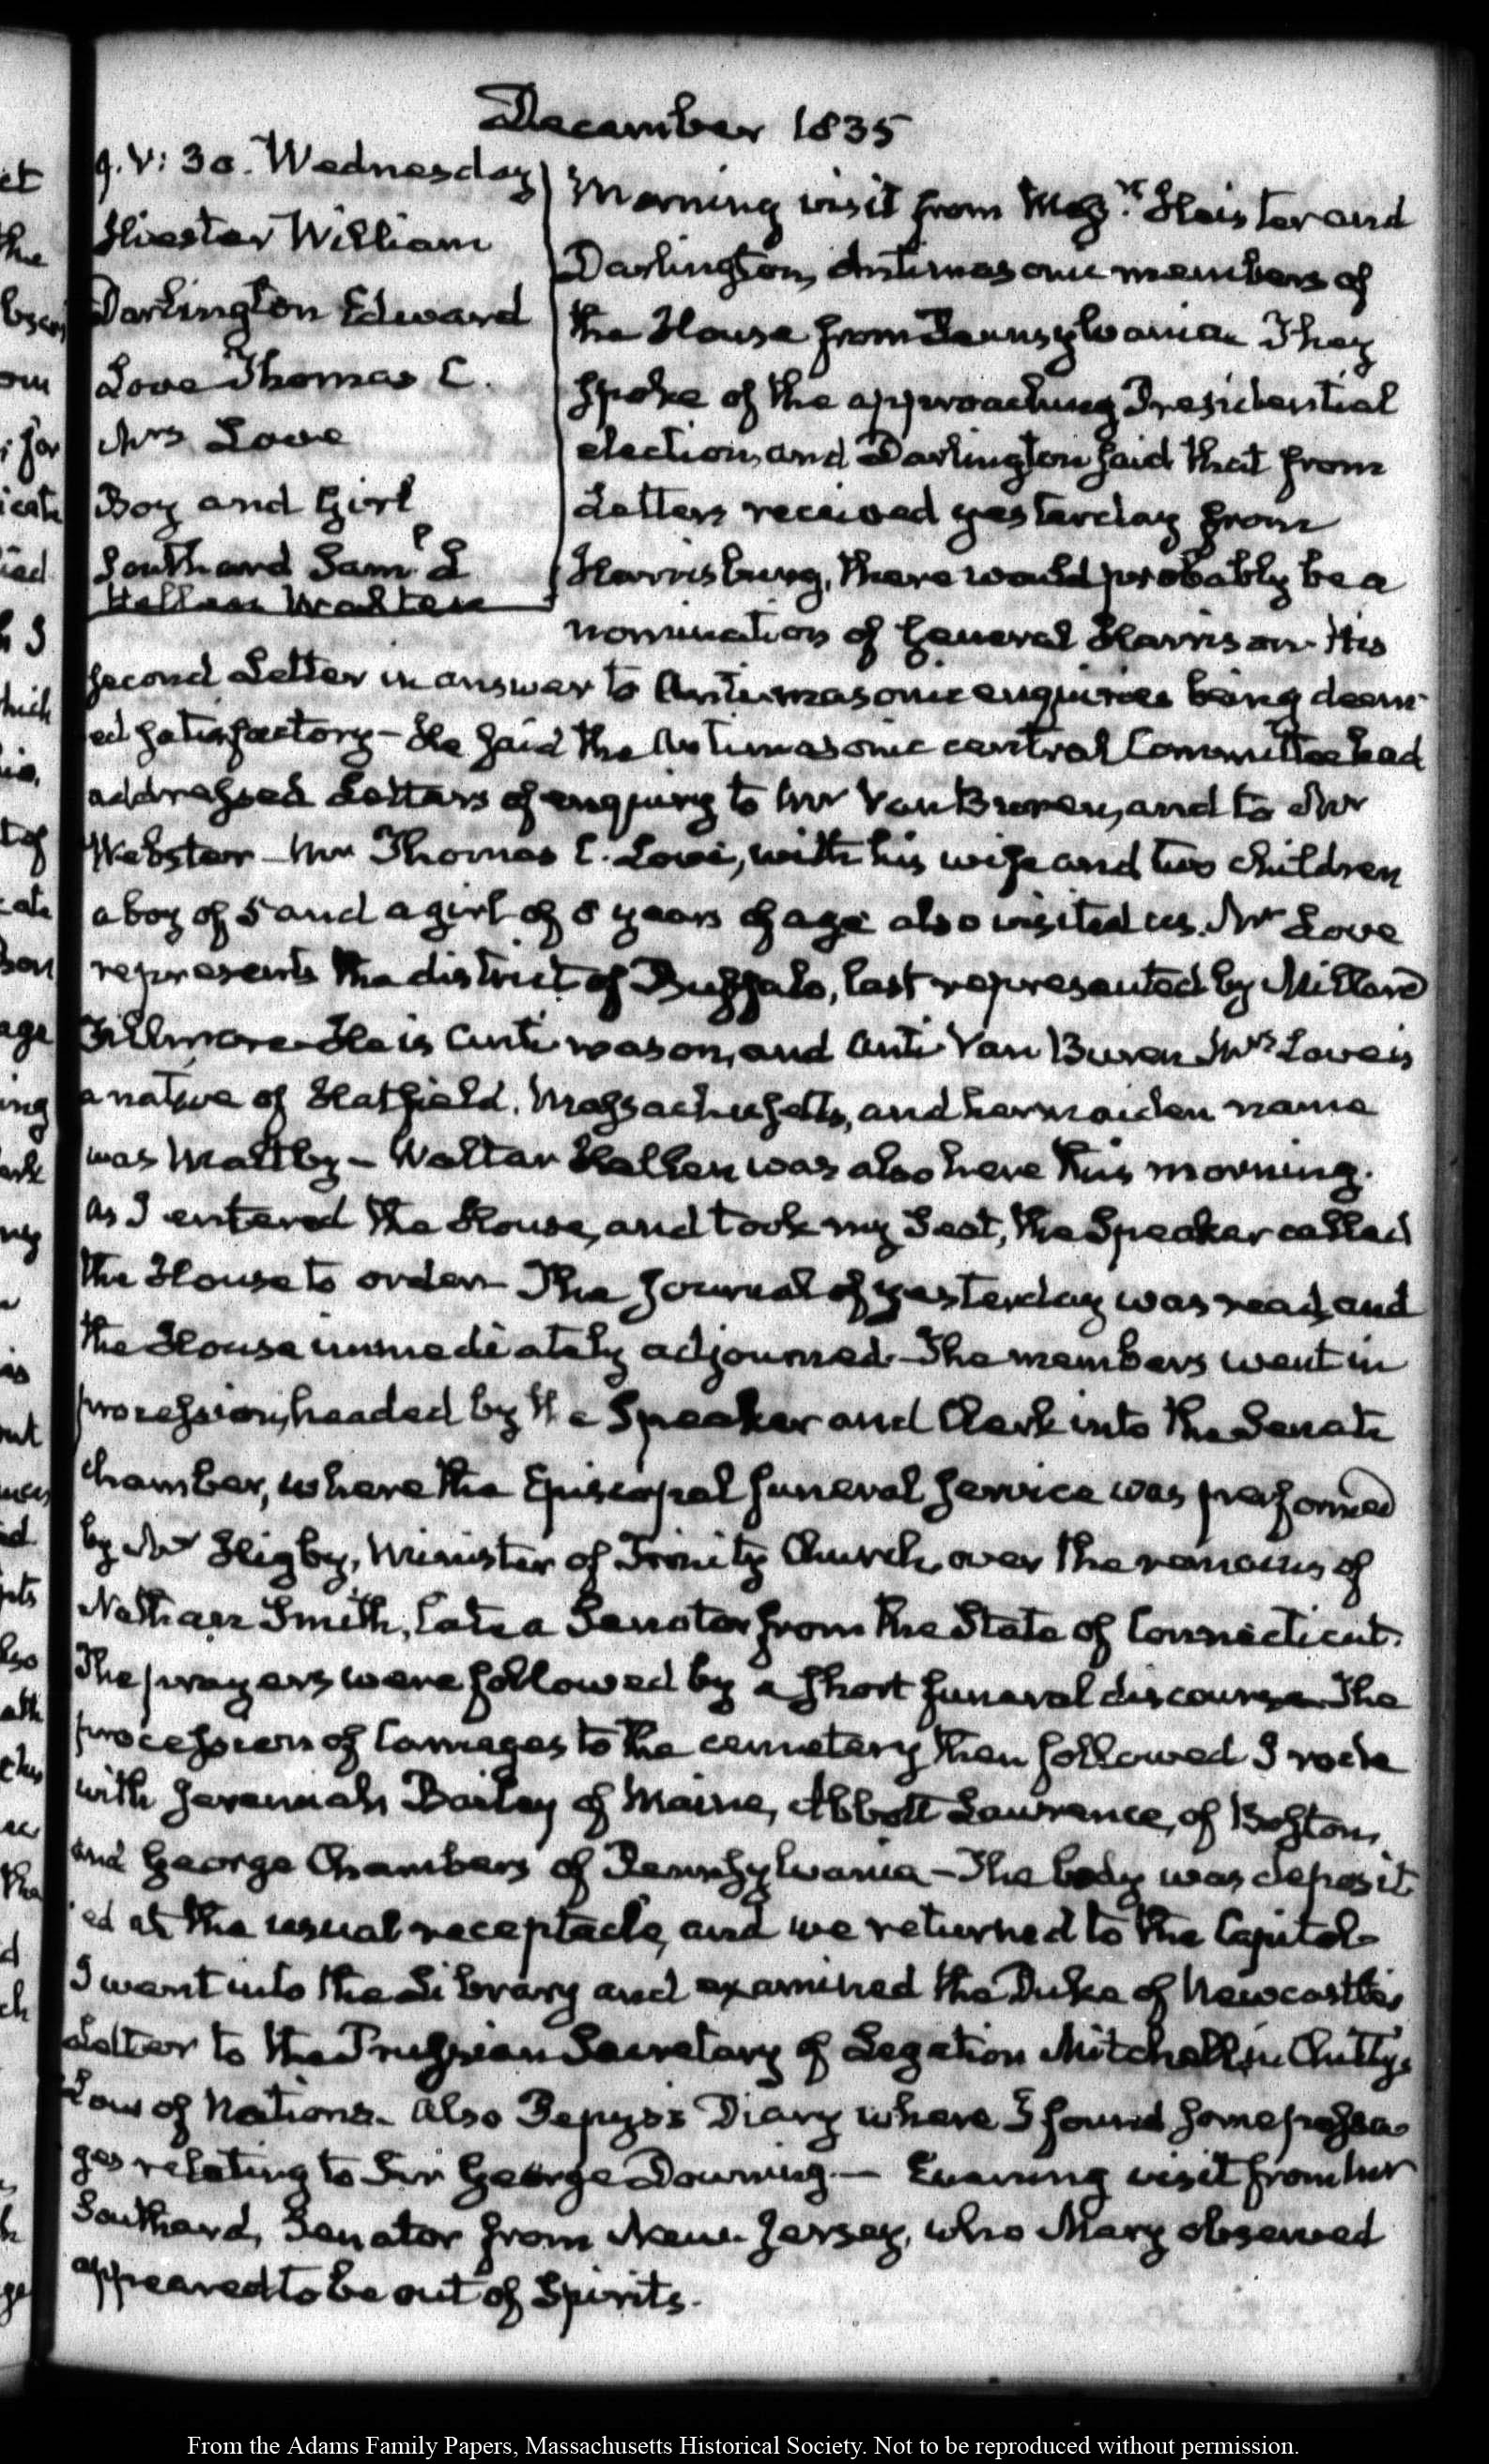 December 1835
9. V: 30. Wednesday
Hiester William
Darlington Edward
Love Thomas C.
Mrs Love
Boy and Girl
Southard Saml. L
Hellen Walter
Morning visit from Messrs. Heister and
Darlington, Antimasonic members of
the House from Pennsylvania. They
spoke of the approaching Presidential
election, and Darlington said that from
Letters received yesterday from
Harrisburg, there would probably be a
nomination of General Harrison. His
second Letter in answer to Antimasonic enquiries being deem-
ed satisfactory— He said the Antimasonic central Committee had
addressed Letters of enquiry to Mr Van Buren, and to Mr
Webster— Mr Thomas C. Love, with his wife and two children
a boy of 5 and a girl of 8 years of age also visited us. Mr Love
represents the district of Buffalo, last represented by Millard
Fillmore. He is Antimason, and Anti Van Buren. Mrs Love is
a native of Hatfield, Massachusetts, and her maiden name
was Maltby— Walter Hellen was also here this morning.
As I entered the House, and took my Seat, the Speaker called
the House to order— The Journal of yesterday was read, and
the House immediately adjourned— The members went in
procession, headed by the Speaker and Clerk into the Senate
chamber, where the Episcopal funeral service was performed
by Mr Higby, Minister of Trinity Church, over the remains of
Nathan Smith, late a Senator from the State of Connecticut.
The prayers were followed by a short funeral discourse. The
procession of Carriages to the cemetery then followed I rode
with Jeremiah Bailey of Maine, Abbott Lawrence, of Boston,
and George Chambers of Pennsylvania— The body was deposit-
ed at the usual receptacle, and we returned to the Capitol—
I went into the Library and examined the Duke of Newcastle's
Letter to the Prussian Secretary of Legation Mitchell, in Chitty's
Law of Nations— Also Pepys's Diary where I found some passa-
ges relating to Sir George Downing.— Evening visit from Mr
Southard, Senator from New-Jersey, who Mary observed
appeared to be out of Spirits.
From the Adams Family Papers, Massachusetts Historical Society. Not to be reproduced without permission.